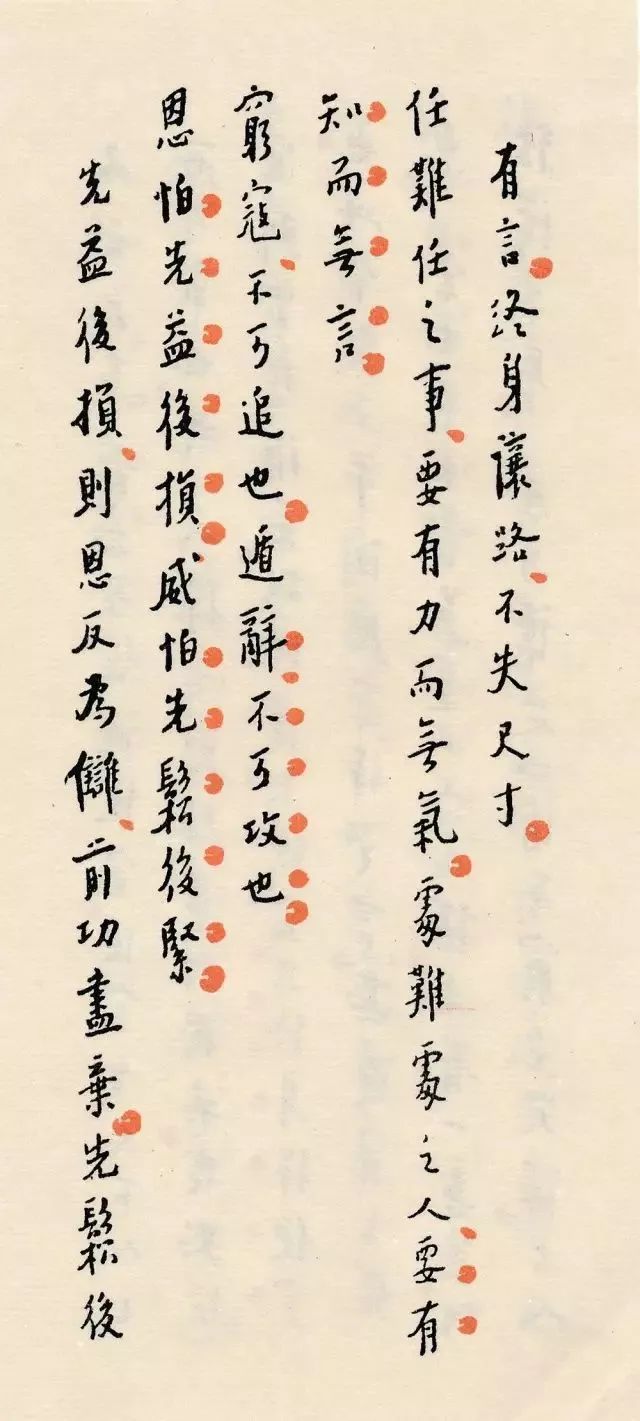 有言終身讓路不失尺寸
任難任之事要有力而無氣處難處之人要有
知而無言
窮寇不可追也遁辭不可攻也
恩怕先益後損威怕先鬆後緊
先益後損則恩反為讎前功盡棄先鬆後